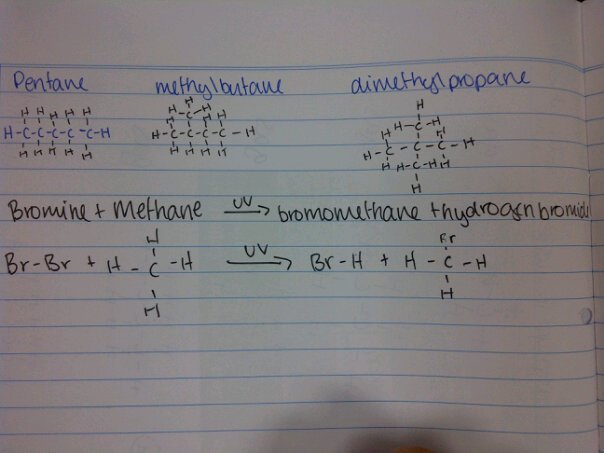 Pentane methylbutane dimethylpropane
H
H H H H H H-C-H H-C-H
H-C-C-C-C-C-H H-C-C-C-C-H H-C-C-C-H
H H H H H H H H H H H-C-H H
H
Bromine + Methane UV → bromomethane + hydrogen bromide
H Br
Br-Br + H-C-H UV → Br-H + H-C-H
H H